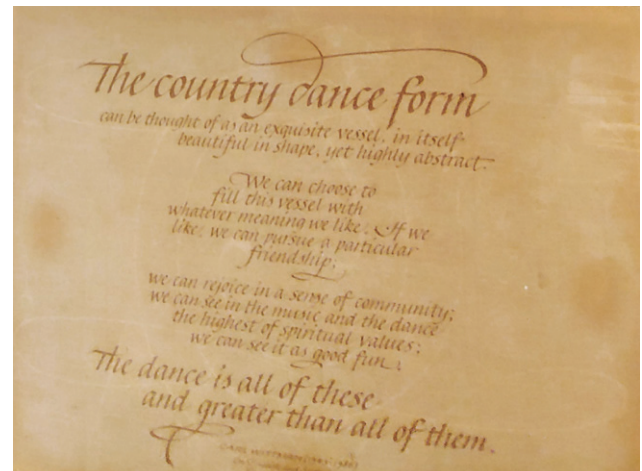 The country dance form
can be thought of as an exquisite vessel, in itself
beautiful in shape, yet highly abstract.
We can choose to
fill this vessel with
whatever meaning we like. If we
like, we can pursue a particular
friendship;
we can rejoice in a sense of community;
we can see in the music and the dance
the highest of spiritual values;
we can see it as good fun.
The dance is all of these
and greater than all of them.